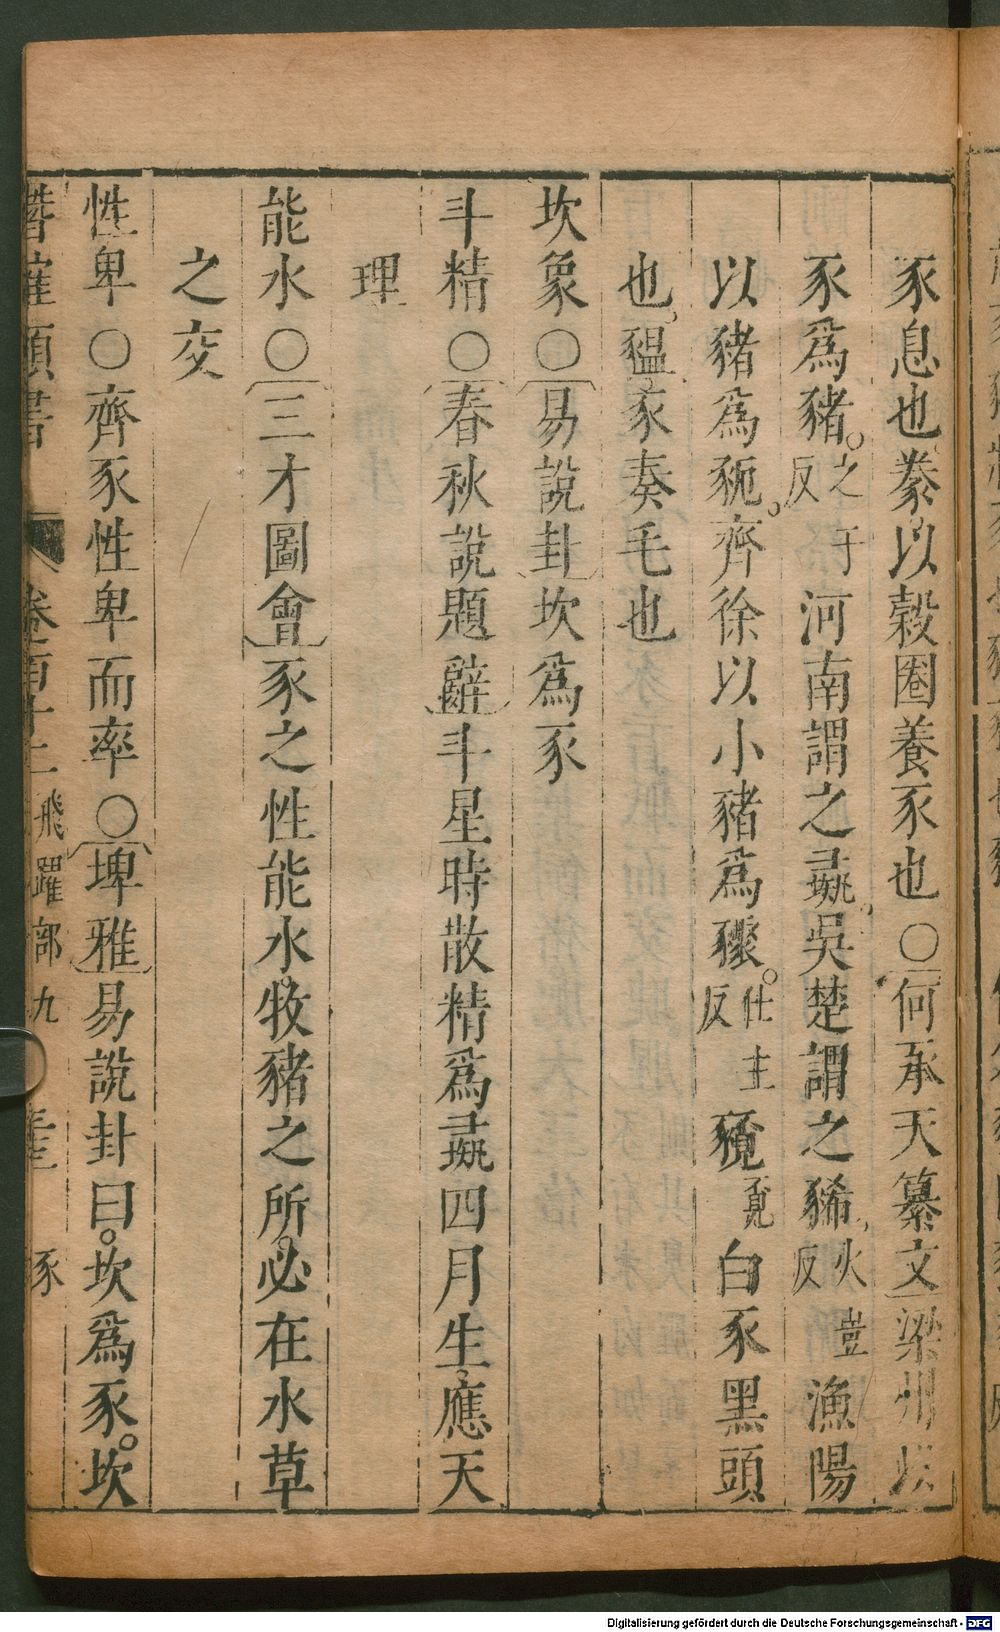 豕息也豢以穀圈養豕也〇何承天纂文梁州以
豕爲豬之于反河南謂之彘吳楚謂之豨火豈反漁陽
以豬爲豝齊徐以小豬爲仕主反白豕黑頭
也豱豕奏毛也
坎象〇易說卦坎爲豕
斗精〇春秋說題辭斗星時散精爲彘四月生應天
理
能水〇三才圖會豕之性能水牧豬之所必在水草
之交
性卑〇齊豕性卑而率〇埤雅易說卦曰坎爲豕坎
類書 卷 飛躍部九 豕
Digitalisierung gefördert durch die Deutsche Forschungsgemeinschaft - DFG